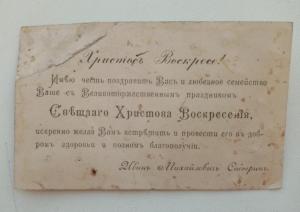 Христосъ Воскресе!
Имѣю честь поздравить Васъ и любезное семейство
Ваше съ Великоторжественнымъ праздникомъ
Свѣтлаго Христова Воскресенія,
искренно желая Вамъ встрѣтить и провести его въ доб-
ромъ здоровьи и полномъ благополучіи.
Иванъ Михайловичъ